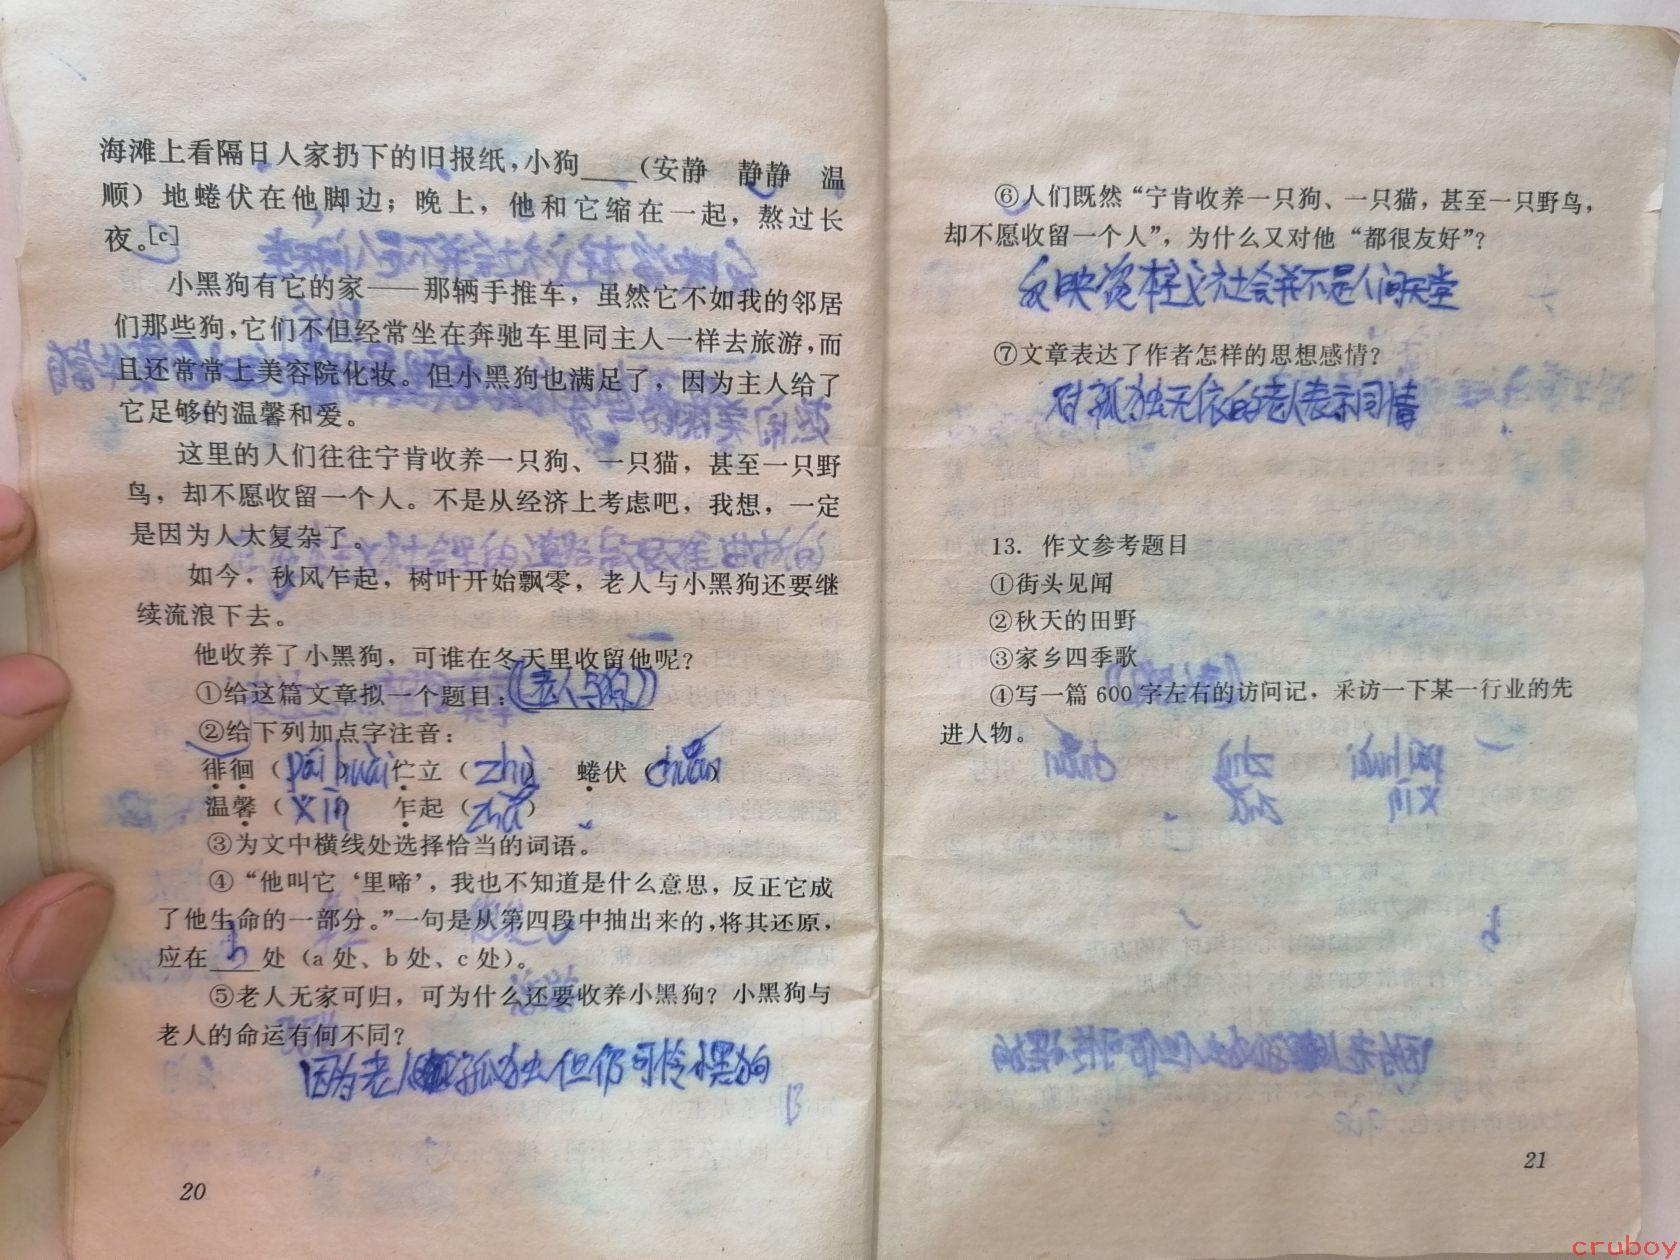 海滩上看隔日人家扔下的旧报纸，小狗____（安静　静静　温
顺）地蜷伏在他脚边；晚上，他和它缩在一起，熬过长
夜。[c]
小黑狗有它的家——那辆手推车，虽然它不如我的邻居
们那些狗，它们不但经常坐在奔驰车里同主人一样去旅游，而
且还常常上美容院化妆。但小黑狗也满足了，因为主人给了
它足够的温馨和爱。
这里的人们往往宁肯收养一只狗、一只猫，甚至一只野
鸟，却不愿收留一个人。不是从经济上考虑吧，我想，一定
是因为人太复杂了。
如今，秋风乍起，树叶开始飘零，老人与小黑狗还要继
续流浪下去。
他收养了小黑狗，可谁在冬天里收留他呢？
①给这篇文章拟一个题目：《老人与狗》
②给下列加点字注音：
徘徊（pái huái）伫立（zhù）　蜷伏（）
温馨（xīn）　乍起（zhà）
③为文中横线处选择恰当的词语。
④“他叫它‘里啼’，我也不知道是什么意思，反正它成
了他生命的一部分。”一句是从第四段中抽出来的，将其还原，
应在b处（a处、b处、c处）。
⑤老人无家可归，可为什么还要收养小黑狗？小黑狗与
老人的命运有何不同？
因为老人孤独但仍可怜小黑狗
20
⑥人们既然“宁肯收养一只狗、一只猫，甚至一只野鸟，
却不愿收留一个人”，为什么又对他“都很友好”？
反映资本主义社会并不是人间天堂
⑦文章表达了作者怎样的思想感情？
对孤独无依的老人表示同情
13. 作文参考题目
①街头见闻
②秋天的田野
③家乡四季歌
④写一篇600字左右的访问记，采访一下某一行业的先
进人物。
21
cruboy